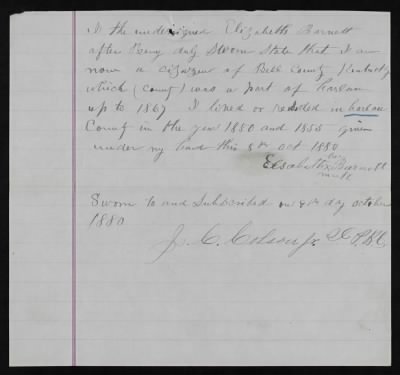 I the undersigned Elizabeth Barnett
after being duly Sworn State that I am
now a citizen of Bell County Kentucky
which (county) was a part of Harlan
up to 1867 I lived or resided in Harlan
County in the year 1850 and 1855 given
under my hand this 8th Oct 1880
her
Elsabeth x Barnett
mark
Sworn to and Subscribed on 8th day october
1880
J. C. Colson